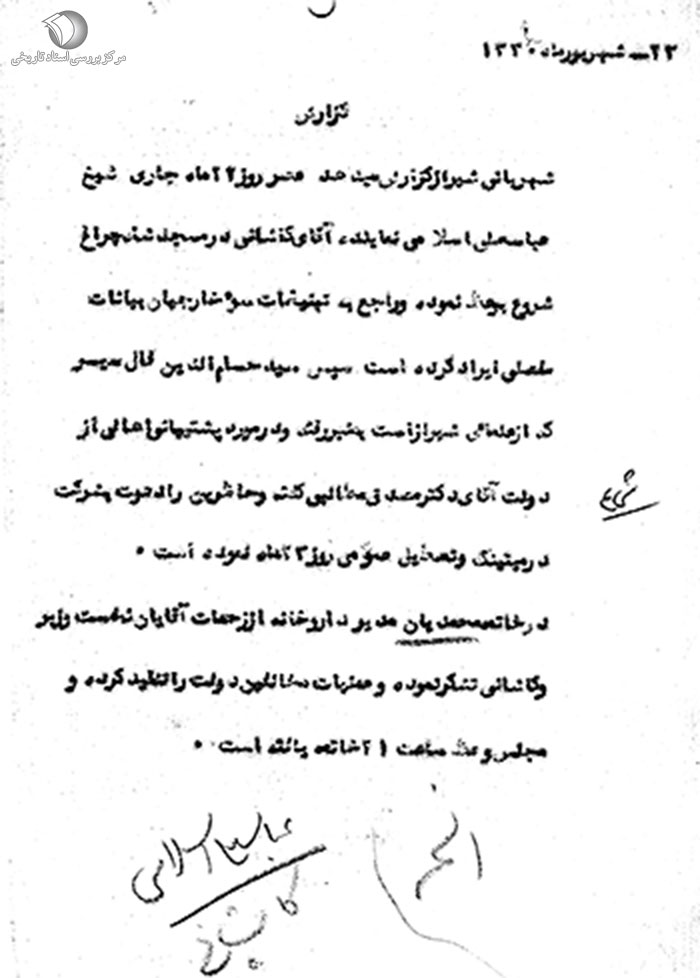 مرکز بررسی اسناد تاریخی
۲۳ شهریورماه ۱۳۳۰
گزارش
شهربانی شیراز گزارش میدهد عصر روز ۲۲ ماه جاری شیخ
عباسعلی اسلامی نماینده آقای کاشانی در مسجد شاهچراغ
شروع بوعظ نموده وراجع به تهیه مؤخارجیان بیانات
مفصلی ایراد کرده است سپس سید حسام الدین فال سیری
که از علمای شیراز است بمنبر رفته ودر مورد پشتیبانی اهالی از
دولت آقای دکتر مصدق مطالبی گفته وحاضرین را دعوت بشرکت
در میتینگ وتعطیل عمومی روز ۲۳ ماه نموده است ۰
در خاتمه محمدیان مدیر داروخانه از زحمات آقایان نخست وزیر
وکاشانی تشکر نموده و عملیات مخالفین دولت را تنقید کرده و
مجلس وعظ ساعت ۲۱ خاتمه یافته است ۰
عباسعلی اسلامی